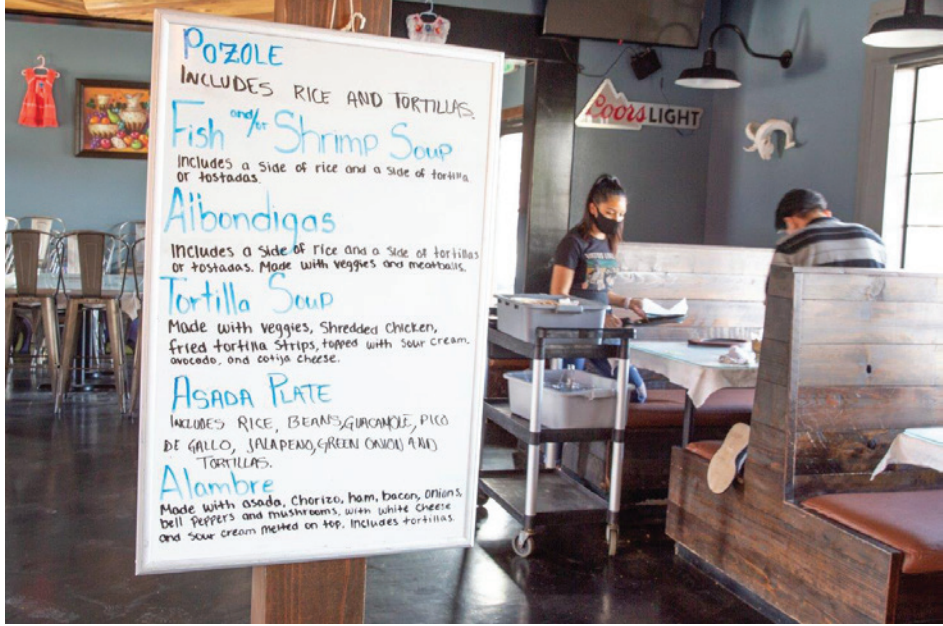 POZOLE
INCLUDES RICE AND TORTILLAS.
Fish and/or Shrimp Soup
Includes a side of rice and a side of tortilla
or tostadas.
Albondigas
Includes a side of rice and a side of tortillas
or tostadas. Made with veggies and meatballs.
Tortilla Soup
Made with veggies, Shredded Chicken,
fried tortilla strips, topped with sour cream,
avocado, and cotija cheese.
ASADA PLATE
INCLUDES RICE, BEANS, GUACAMOLE, PICO
DE GALLO, JALAPENO, GREEN ONION AND
TORTILLAS.
Alambre
Made with asada, Chorizo, ham, bacon, onions,
bell peppers and mushrooms, with white cheese
and sour cream melted on top. Includes tortillas.
Coors LIGHT